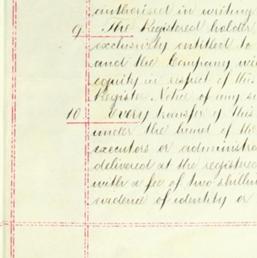 authorised in writing
9. The Registered holder
exclusively entitled to
and the Company will
equity in respect of this
Register Notice of any
10. Every transfer of this
under the hand of the
executors or administra
delivered at the registered
with a fee of two shillin
evidence of identity or